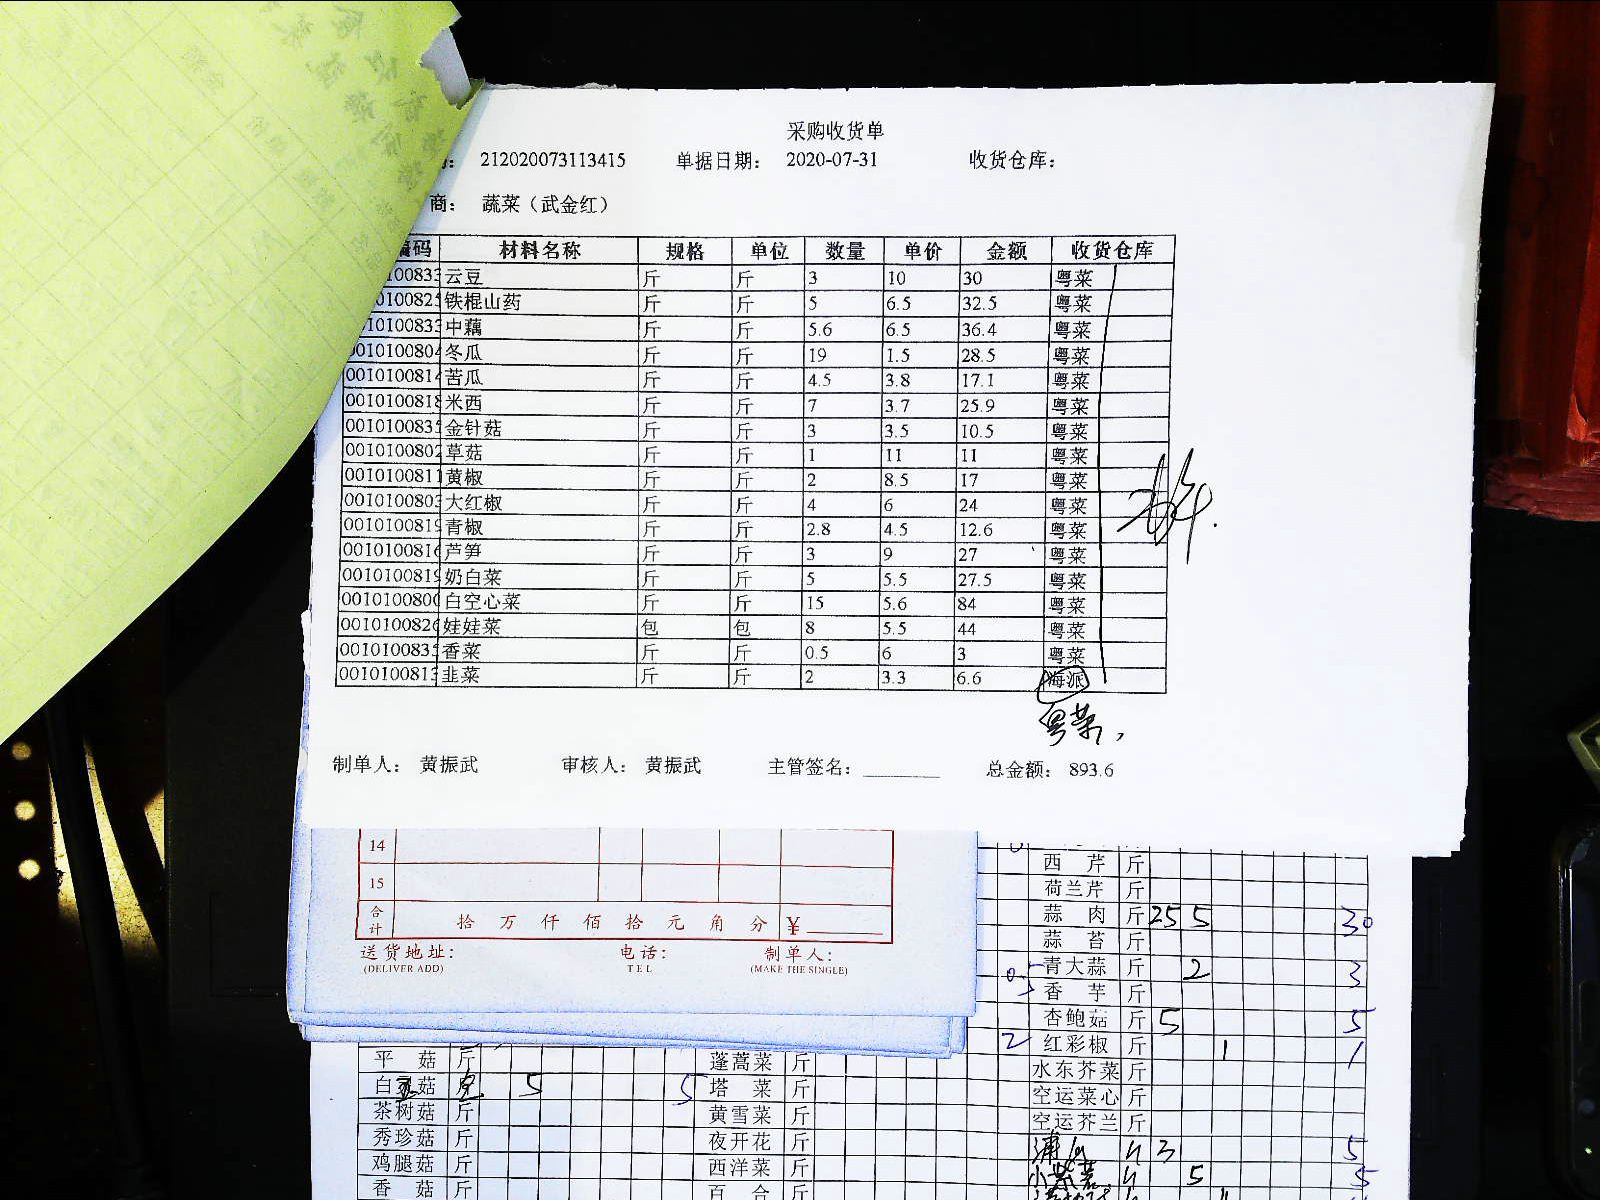 采购收货单
: 212020073113415 单据日期: 2020-07-31 收货仓库:
商: 蔬菜（武金红）
编码 材料名称 规格 单位 数量 单价 金额 收货仓库
10083 云豆 斤 斤 3 10 30 粤菜
010082 铁棍山药 斤 斤 5 6.5 32.5 粤菜
1010083 中藕 斤 斤 5.6 6.5 36.4 粤菜
001010080 冬瓜 斤 斤 19 1.5 28.5 粤菜
001010081 苦瓜 斤 斤 4.5 3.8 17.1 粤菜
001010081 米西 斤 斤 7 3.7 25.9 粤菜
001010083 金针菇 斤 斤 3 3.5 10.5 粤菜
001010080 草菇 斤 斤 1 11 11 粤菜
001010081 黄椒 斤 斤 2 8.5 17 粤菜
001010080 大红椒 斤 斤 4 6 24 粤菜
001010081 青椒 斤 斤 2.8 4.5 12.6 粤菜
001010081 芦笋 斤 斤 3 9 27 粤菜
001010081 奶白菜 斤 斤 5 5.5 27.5 粤菜
001010080 白空心菜 斤 斤 15 5.6 84 粤菜
001010082 娃娃菜 包 包 8 5.5 44 粤菜
001010083 香菜 斤 斤 0.5 6 3 粤菜
001010081 韭菜 斤 斤 2 3.3 6.6 海派
粤菜,
制单人: 黄振武 审核人: 黄振武 主管签名: 总金额: 893.6
14
15
合计 拾 万 仟 佰 拾 元 角 分 ¥
送货地址: 电话: 制单人:
(DELIVER ADD) TEL (MAKE THE SINGLE)
西芹 斤
荷兰芹 斤
蒜肉 斤 25 5 30
蒜苔 斤
青大蒜 斤 2 3
0.5 香芋 斤
杏鲍菇 斤 5 5
2 红彩椒 斤 1 1
水东芥菜 斤
空运菜心 斤
空运芥兰 斤
3 5
5 5
平菇 斤 蓬蒿菜 斤
白 菇 5 5 塔菜 斤
茶树菇 斤 黄雪菜 斤
秀珍菇 斤 夜开花 斤
鸡腿菇 斤 西洋菜 斤
香菇 斤 百合 斤